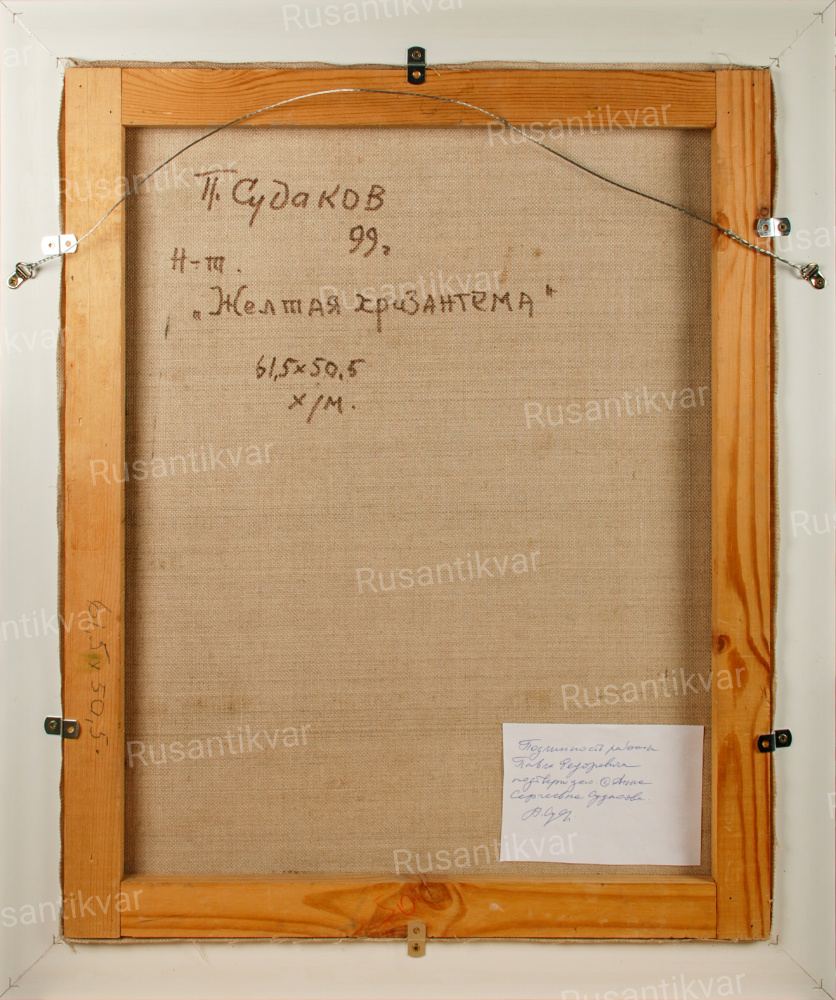 П. Судаков
99г
Н-т.
"Желтая хризантема"
61,5x50,5
х/м.
61,5x50,5.
50
Подлинность работы
Павла Федоровича
подтверждаю Анна
Сергеевна Судакова
Rusantikvar
Rusantikvar
Rusantikvar
Rusantikvar
Rusantikvar
Rusantikvar
Rusantikvar
Rusantikvar
Rusantikvar
Rusantikvar
Rusantikvar